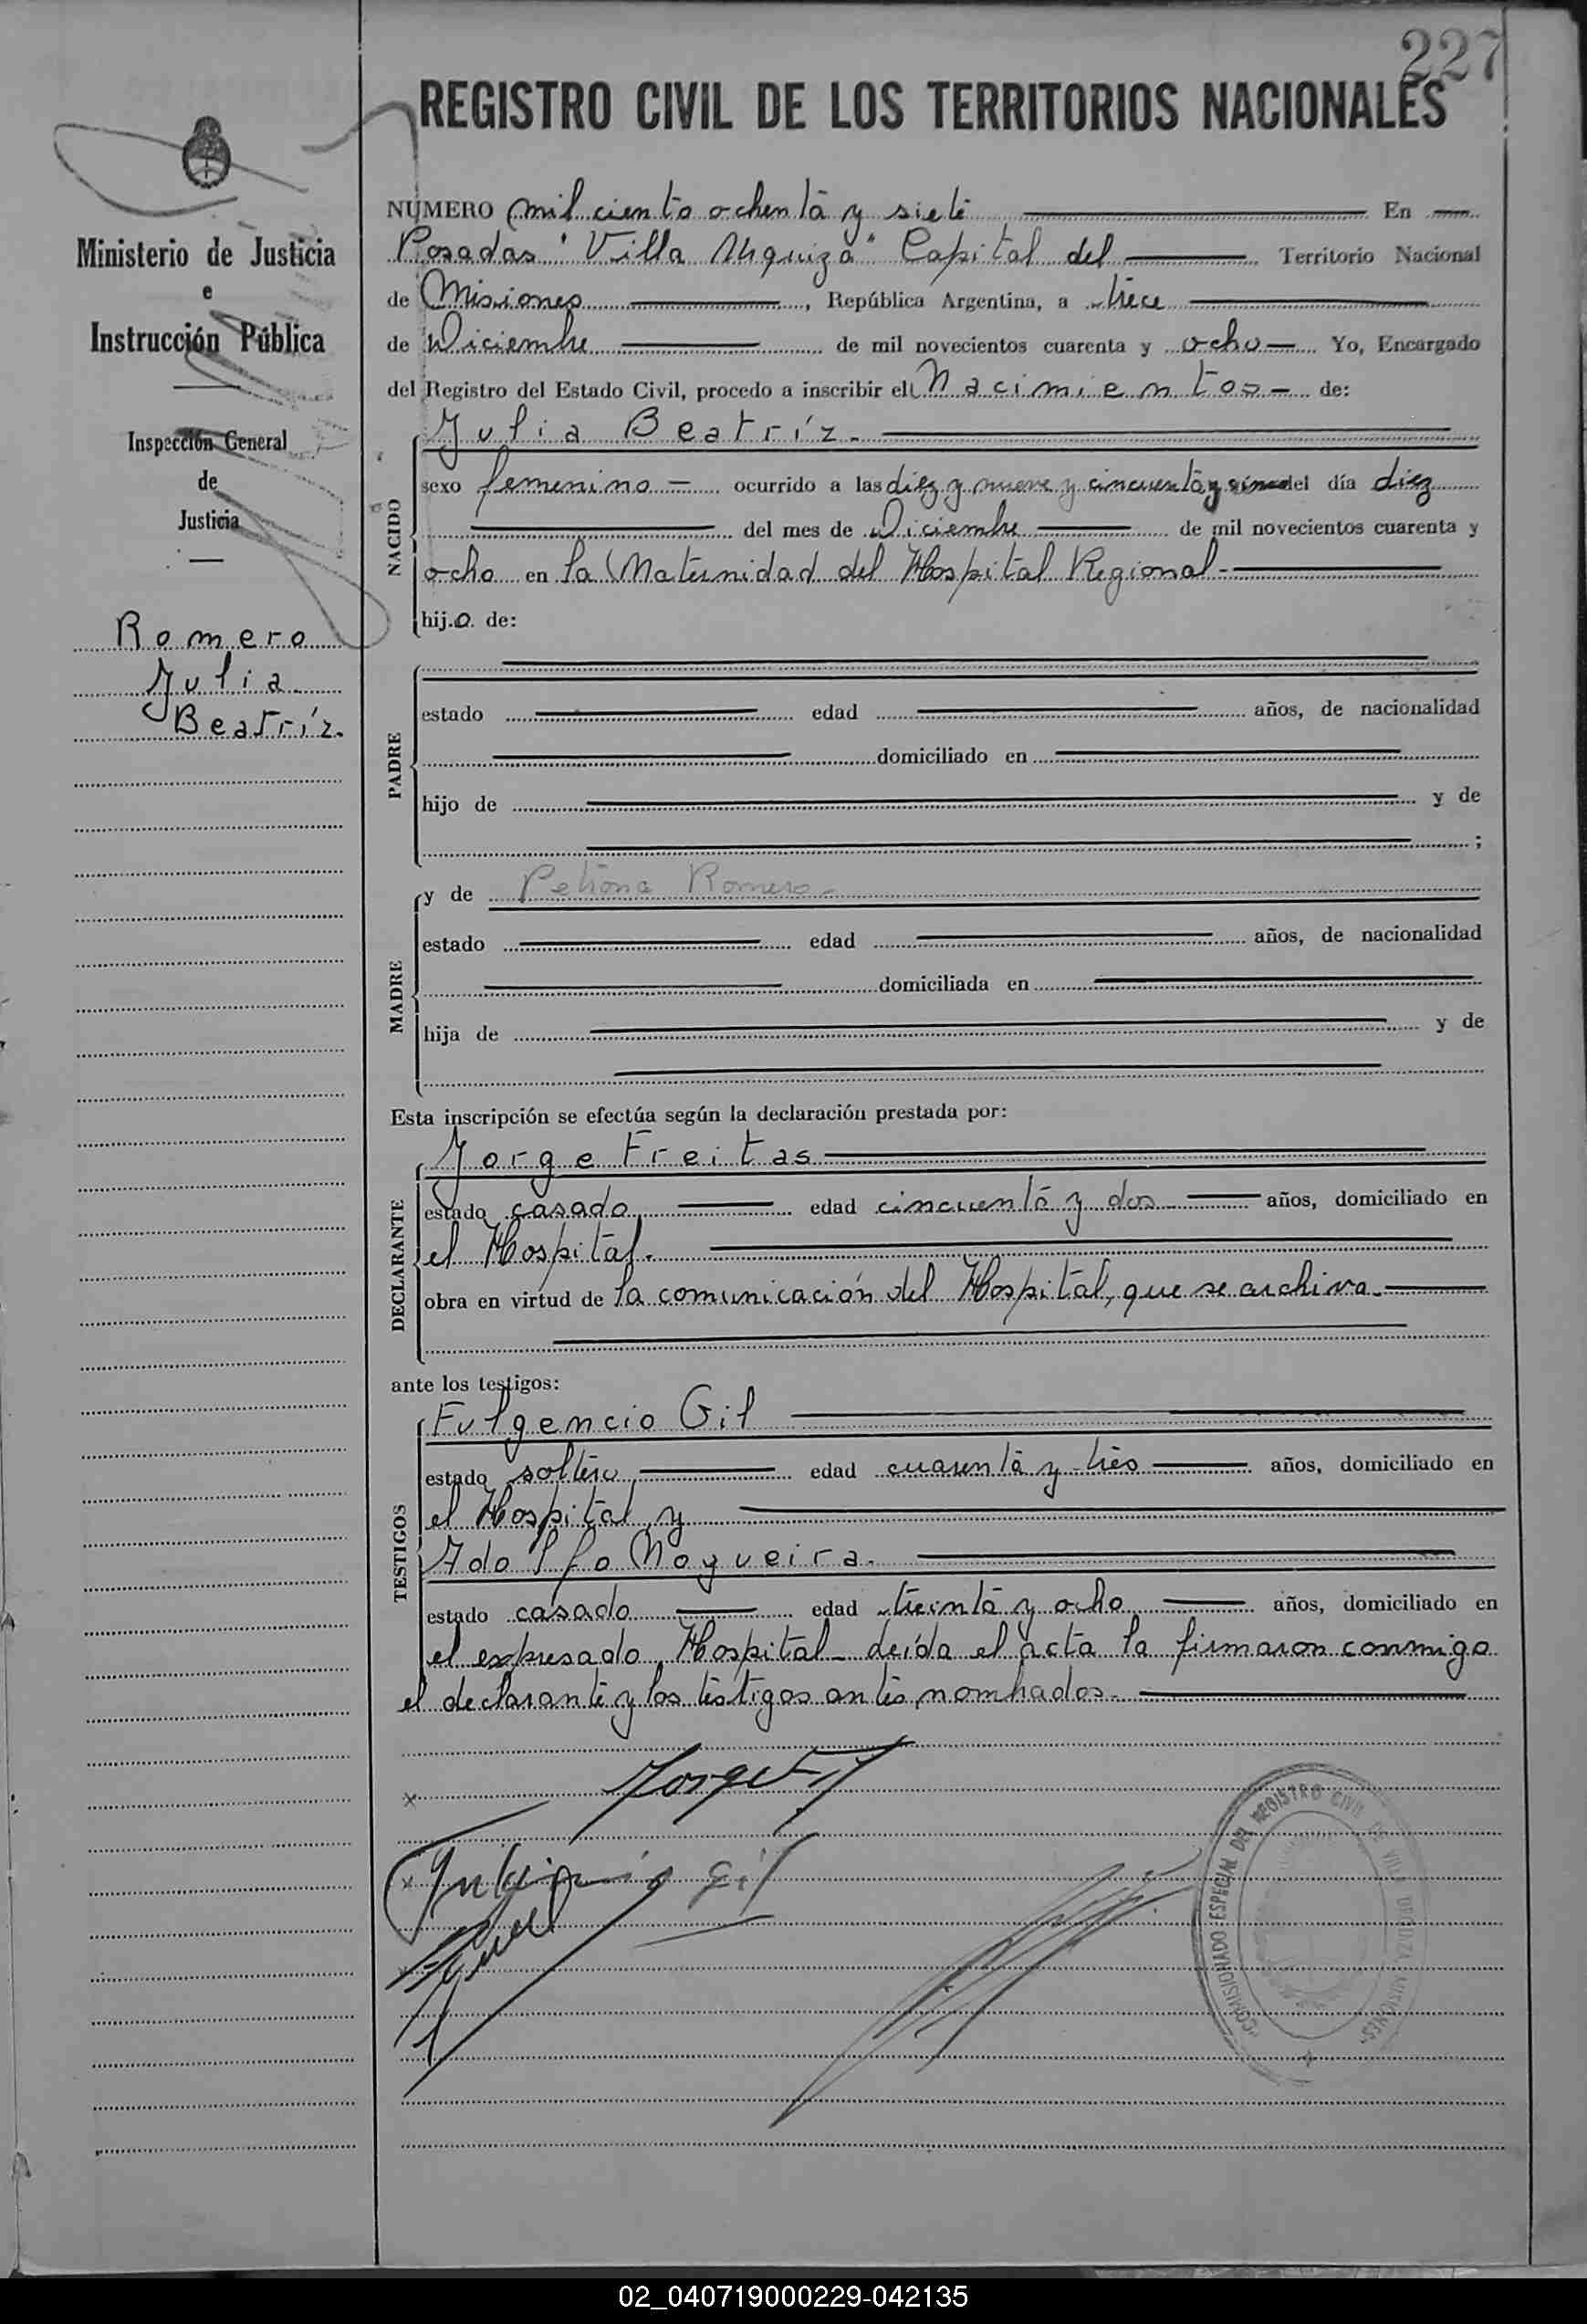 227
REGISTRO CIVIL DE LOS TERRITORIOS NACIONALES
Ministerio de Justicia
e
Instrucción Pública
Inspección General
de
Justicia
Romero
Julia
Beatríz.
NÚMERO mil ciento ochenta y siete En
Posadas "Villa Urquiza" Capital del Territorio Nacional
de Misiones, República Argentina, a trece
de Diciembre de mil novecientos cuarenta y ocho Yo, Encargado
del Registro del Estado Civil, procedo a inscribir el Nacimientos de:
Julia Beatríz.
NACIDO
sexo femenino ocurrido a las diez y nueve y cincuenta y cinco del día diez
del mes de Diciembre de mil novecientos cuarenta y
ocho en la Maternidad del Hospital Regional
hij.a de:
PADRE
estado edad años, de nacionalidad
domiciliado en
hijo de y de
;
MADRE
y de Petrona Romero
estado edad años, de nacionalidad
domiciliada en
hija de y de
Esta inscripción se efectúa según la declaración prestada por:
DECLARANTE
Jorge Freitas
estado casado edad cincuenta y dos años, domiciliado en
el Hospital.
obra en virtud de la comunicación del Hospital, que se archiva.
ante los testigos:
TESTIGOS
Fulgencio Gil
estado soltero edad cuarenta y tres años, domiciliado en
el Hospital y
Adolfo Nogueira.
estado casado edad treinta y ocho años, domiciliado en
el expresado Hospital leída el acta la firmaron conmigo
el declarante y los testigos antes nombrados.
x Jorge
x Fulgencio Gil
x
COMISIONADO ESPECIAL DEL REGISTRO CIVIL DE VILLA URQUIZA MISIONES
02_040719000229-042135